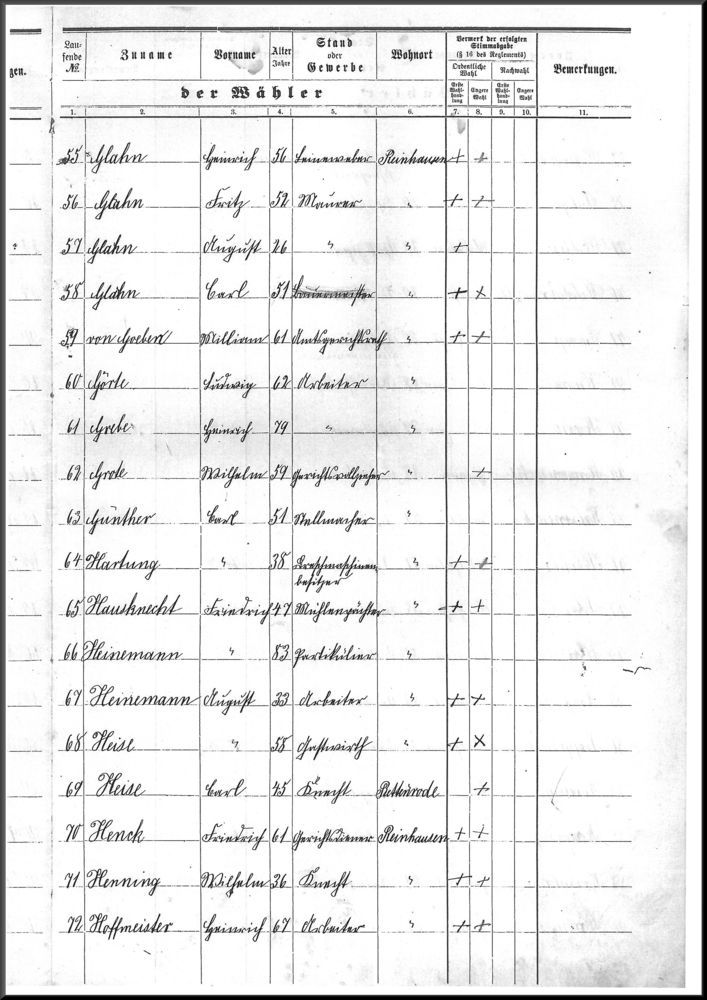 gen.
Lau-
fende
№.
Zuname
Vorname
Alter
Jahre
Stand
oder
Gewerbe
Wohnort
Vermerk der erfolgten
Stimmabgabe
(§ 16 des Reglements)
Ordentliche
Wahl
Nachwahl
Bemerkungen.
der Wähler
Erste
Wahl-
hand-
lung
Engere
Wahl
Erste
Wahl-
hand-
lung
Engere
Wahl
1. 2. 3. 4. 5. 6. 7. 8. 9. 10. 11.
55 Glahn Heinrich 56 Leineweber Reinhausen + +
56 Glahn Fritz 52 Maurer " + +
57 Glahn August 26 " " +
58 Glahn Carl 51 Bauermeister " + ×
59 von Goeben William 61 Amtsgerichtsrath " + +
60 Görte Ludwig 62 Arbeiter "
61 Grebe Heinrich 79 " "
62 Grote Wilhelm 59 Gerichtsvollzieher " +
63 Günther Carl 51 Stellmacher "
64 Hartung " 38 Dreschmaschinen- " + +
besitzer
65 Hausknecht Friedrich 47 Mühlenpächter " + +
66 Heinemann " 83 Partikülier "
67 Heinemann August 33 Arbeiter " + +
68 Heise " 58 Gastwirth " + ×
69 Heise Carl 45 Knecht +
70 Henck Friedrich 61 Gerichtsdiener Reinhausen + +
71 Henning Wilhelm 36 Knecht " + +
72 Hoffmeister Heinrich 67 Arbeiter " + +